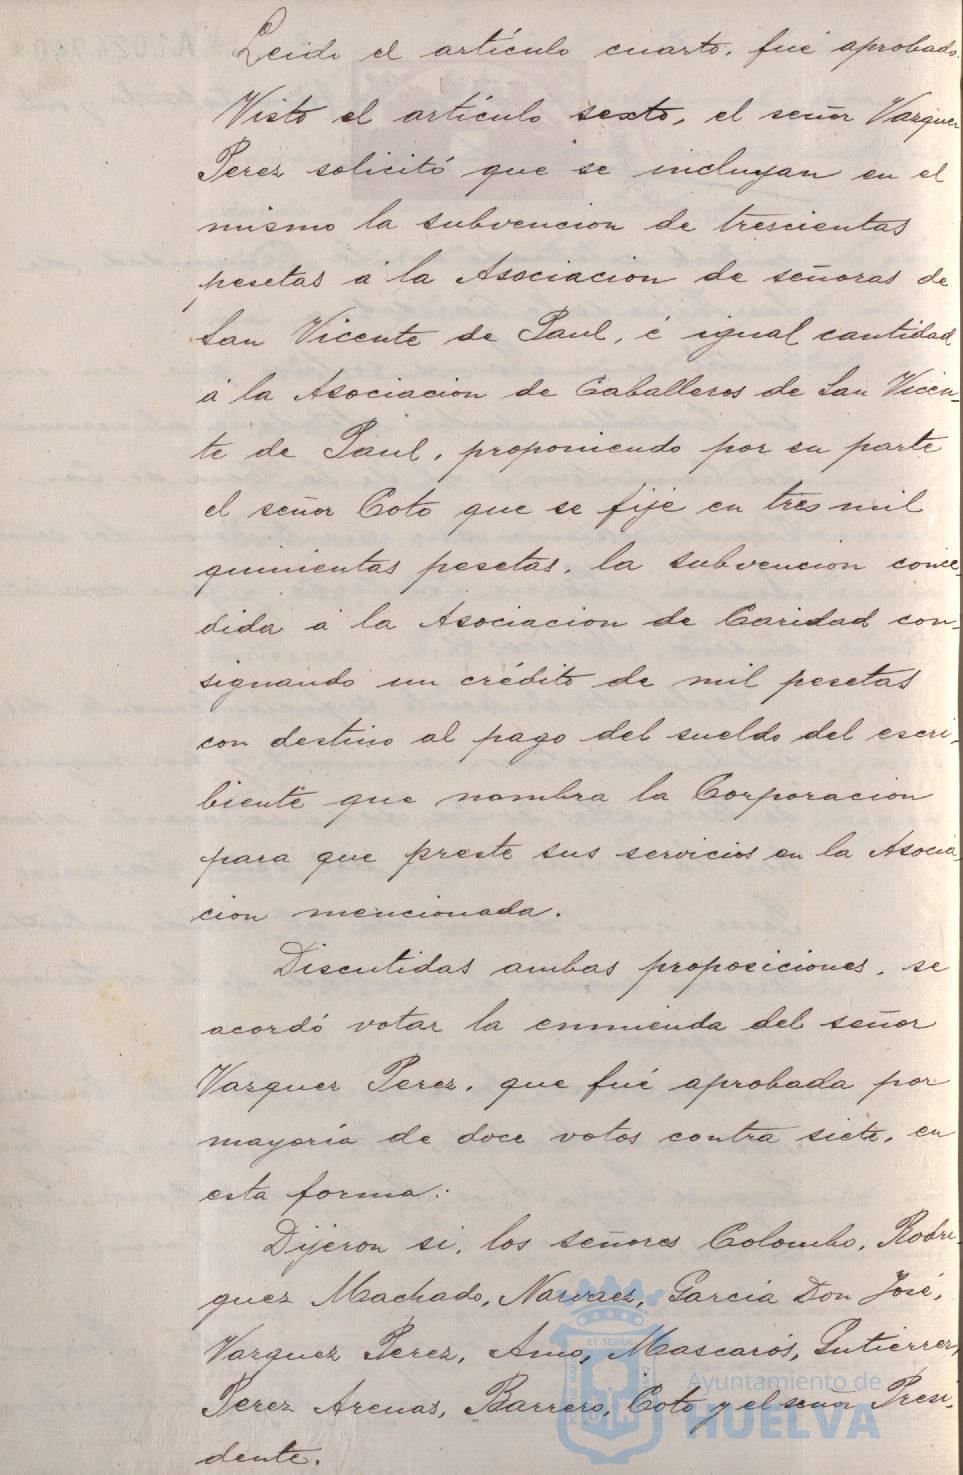 Leido el artículo cuarto, fué aprobado.
Visto el artículo sexto, el señor Vazquez
Perez solicitó que se incluyan en el
mismo la subvencion de trescientas
pesetas á la Asociacion de señoras de
San Vicente de Paul, é igual cantidad
á la Asociacion de Caballeros de San Vicen-
te de Paul, proponiendo por su parte
el señor Coto que se fije en tres mil
quinientas pesetas, la subvencion conce-
dida á la Asociacion de Caridad con-
signando un crédito de mil pesetas
con destino al pago del sueldo del escri-
biente que nombra la Corporacion
para que preste sus servicios en la Asocia-
cion mencionada.
Discutidas ambas proposiciones, se
acordó votar la enmienda del señor
Vazquez Perez, que fué aprobada por
mayoría de doce votos contra siete, en
esta forma:
Dijeron si, los señores Colombo, Rodri-
guez Machado, Narvaez, Garcia Don José,
Vazquez Perez, Amo, Mascarós, Gutierrez,
Perez Arenas, Barrero, Coto y el señor Presi-
dente.
Ayuntamiento de
HUELVA